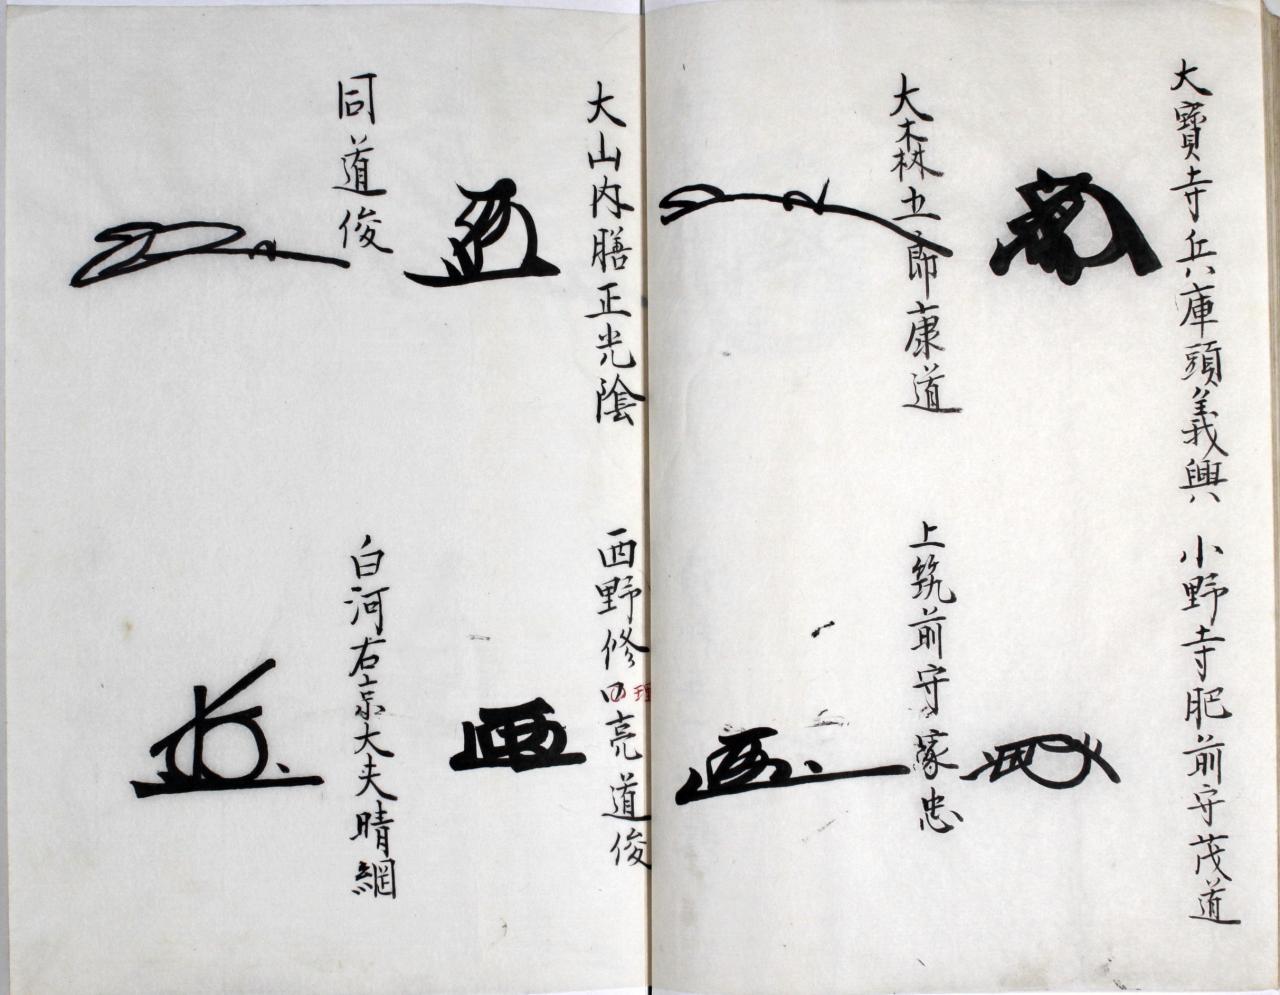 大寶寺兵庫頭義興
小野寺肥前守茂道
大森五郎康道
上筑前守家忠
大山内膳正光陰
西野修理亮道俊
同道俊
白河右京大夫晴綱